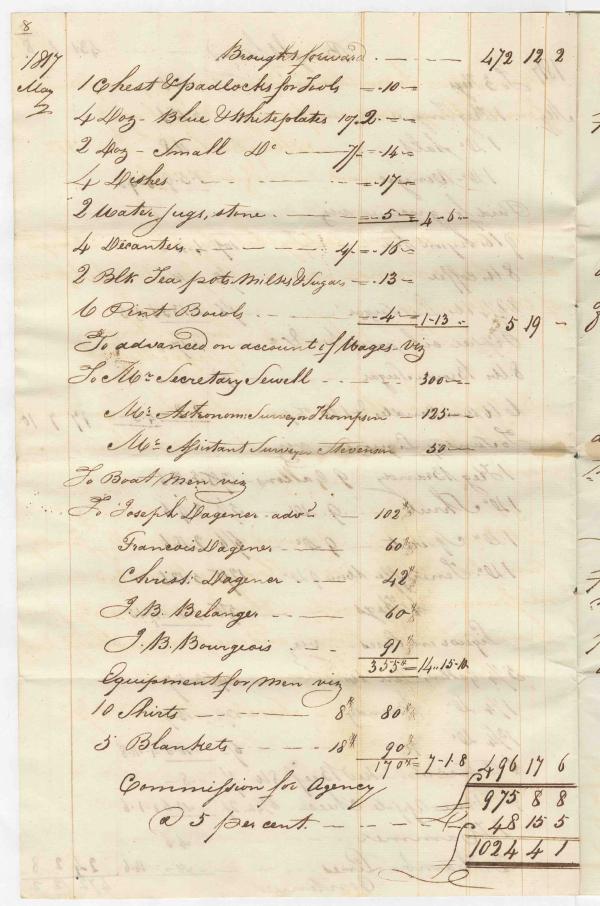 8
1817 Brought forward 472 12 2
May 1 Chest & padlocks for Tools = 10 =
4 Doz - Blue & White plates 10/ 2 - =
2 Doz - Small Do 7/ = 14 =
4 Dishes = 17 =
2 Water Jugs, stone = 5 = 4 - 6 -
4 Decanters 4/ = 16 =
2 Blk Tea pots Milks & Sugars = 13 =
6 Pint Bowls = 4 = 1 - 13 .. 5 19 -
To advanced on account of Wages viz
To Mr Secretary Sewell 300 = =
Mr Astronom: Surveyor Thompson 125 = =
Mr Assistant Surveyor Stevenson 50 = =
To Boat Men viz
To Joseph Dagener advd 102tt
Francois Dagener 60tt
Christ: Dagener 42tt
J. B. Belanger 60tt
J. B. Bourgeois 91tt
355tt = 14 .. 15 - 10
Equipment for Men viz
10 Shirts 8tt 80tt
5 Blankets 18tt 90tt
170tt = 7 - 1 - 8 496 17 6
Commission for Agency 975 8 8
@ 5 per cent. 48 15 5
1024 4 1